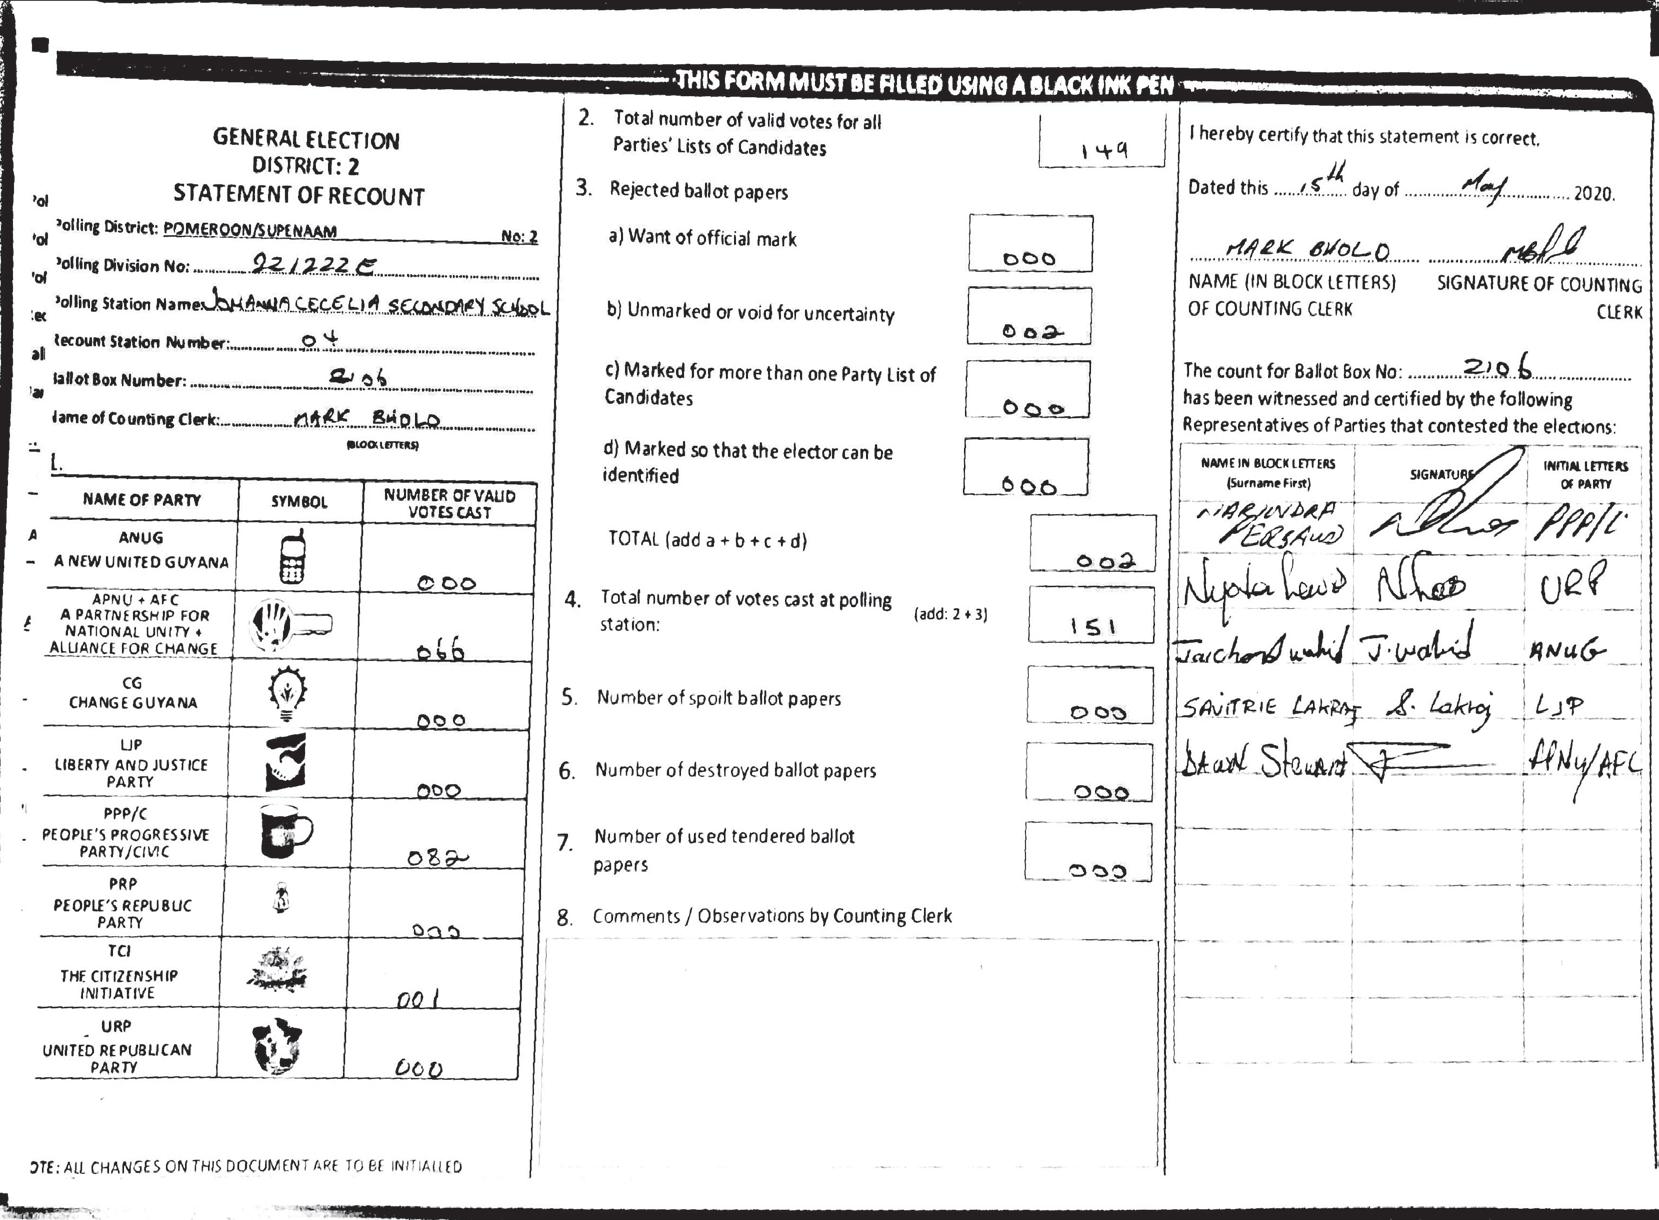 THIS FORM MUST BE FILLED USING A BLACK INK PEN
GENERAL ELECTION
DISTRICT: 2
STATEMENT OF RECOUNT
Polling District: POMEROON/SUPENAAM No: 2
Polling Division No: 221222E
Polling Station Name: JOHANNA CECELIA SECONDARY SCHOOL
Recount Station Number: 04
Ballot Box Number: 2106
Name of Counting Clerk: MARK BHOLO
(BLOCK LETTERS)
1.
NAME OF PARTY SYMBOL NUMBER OF VALID VOTES CAST
ANUG
A NEW UNITED GUYANA
000
APNU + AFC
A PARTNERSHIP FOR
NATIONAL UNITY +
ALLIANCE FOR CHANGE
066
CG
CHANGE GUYANA
000
LJP
LIBERTY AND JUSTICE
PARTY
000
PPP/C
PEOPLE'S PROGRESSIVE
PARTY/CIVIC
082
PRP
PEOPLE'S REPUBLIC
PARTY
000
TCI
THE CITIZENSHIP
INITIATIVE
001
URP
UNITED REPUBLICAN
PARTY
000
OTE: ALL CHANGES ON THIS DOCUMENT ARE TO BE INITIALLED
2. Total number of valid votes for all
Parties' Lists of Candidates
149
3. Rejected ballot papers
a) Want of official mark
000
b) Unmarked or void for uncertainty
002
c) Marked for more than one Party List of
Candidates
000
d) Marked so that the elector can be
identified
000
TOTAL (add a + b + c + d)
002
4. Total number of votes cast at polling
station:
(add: 2 + 3)
151
5. Number of spoilt ballot papers
000
6. Number of destroyed ballot papers
000
7. Number of used tendered ballot
papers
000
8. Comments / Observations by Counting Clerk
I hereby certify that this statement is correct.
Dated this 15th day of May 2020.
MARK BHOLO
NAME (IN BLOCK LETTERS) SIGNATURE OF COUNTING
OF COUNTING CLERK CLERK
The count for Ballot Box No: 2106
has been witnessed and certified by the following
Representatives of Parties that contested the elections:
NAME IN BLOCK LETTERS SIGNATURE INITIAL LETTERS
(Surname First) OF PARTY
NARINDRA
PERSAUD PPP/C
URP
J. Wahid ANUG
SAVITRIE LAKRAJ S. Lakraj LJP
DAWN Stewart APNU/AFC